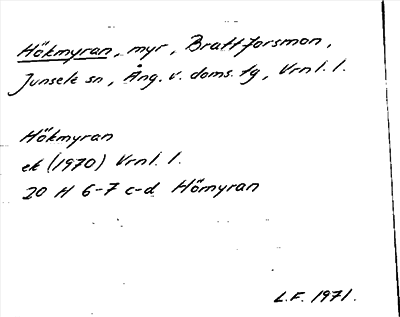 Hökmyran, myr, Brattforsmon,
Junsele sn, Ång. v. doms. tg, Vrnl. l.
Hökmyran
ek (1970) Vrnl. l.
20 H 6-7 c-d Hömyran
L.F. 1971.